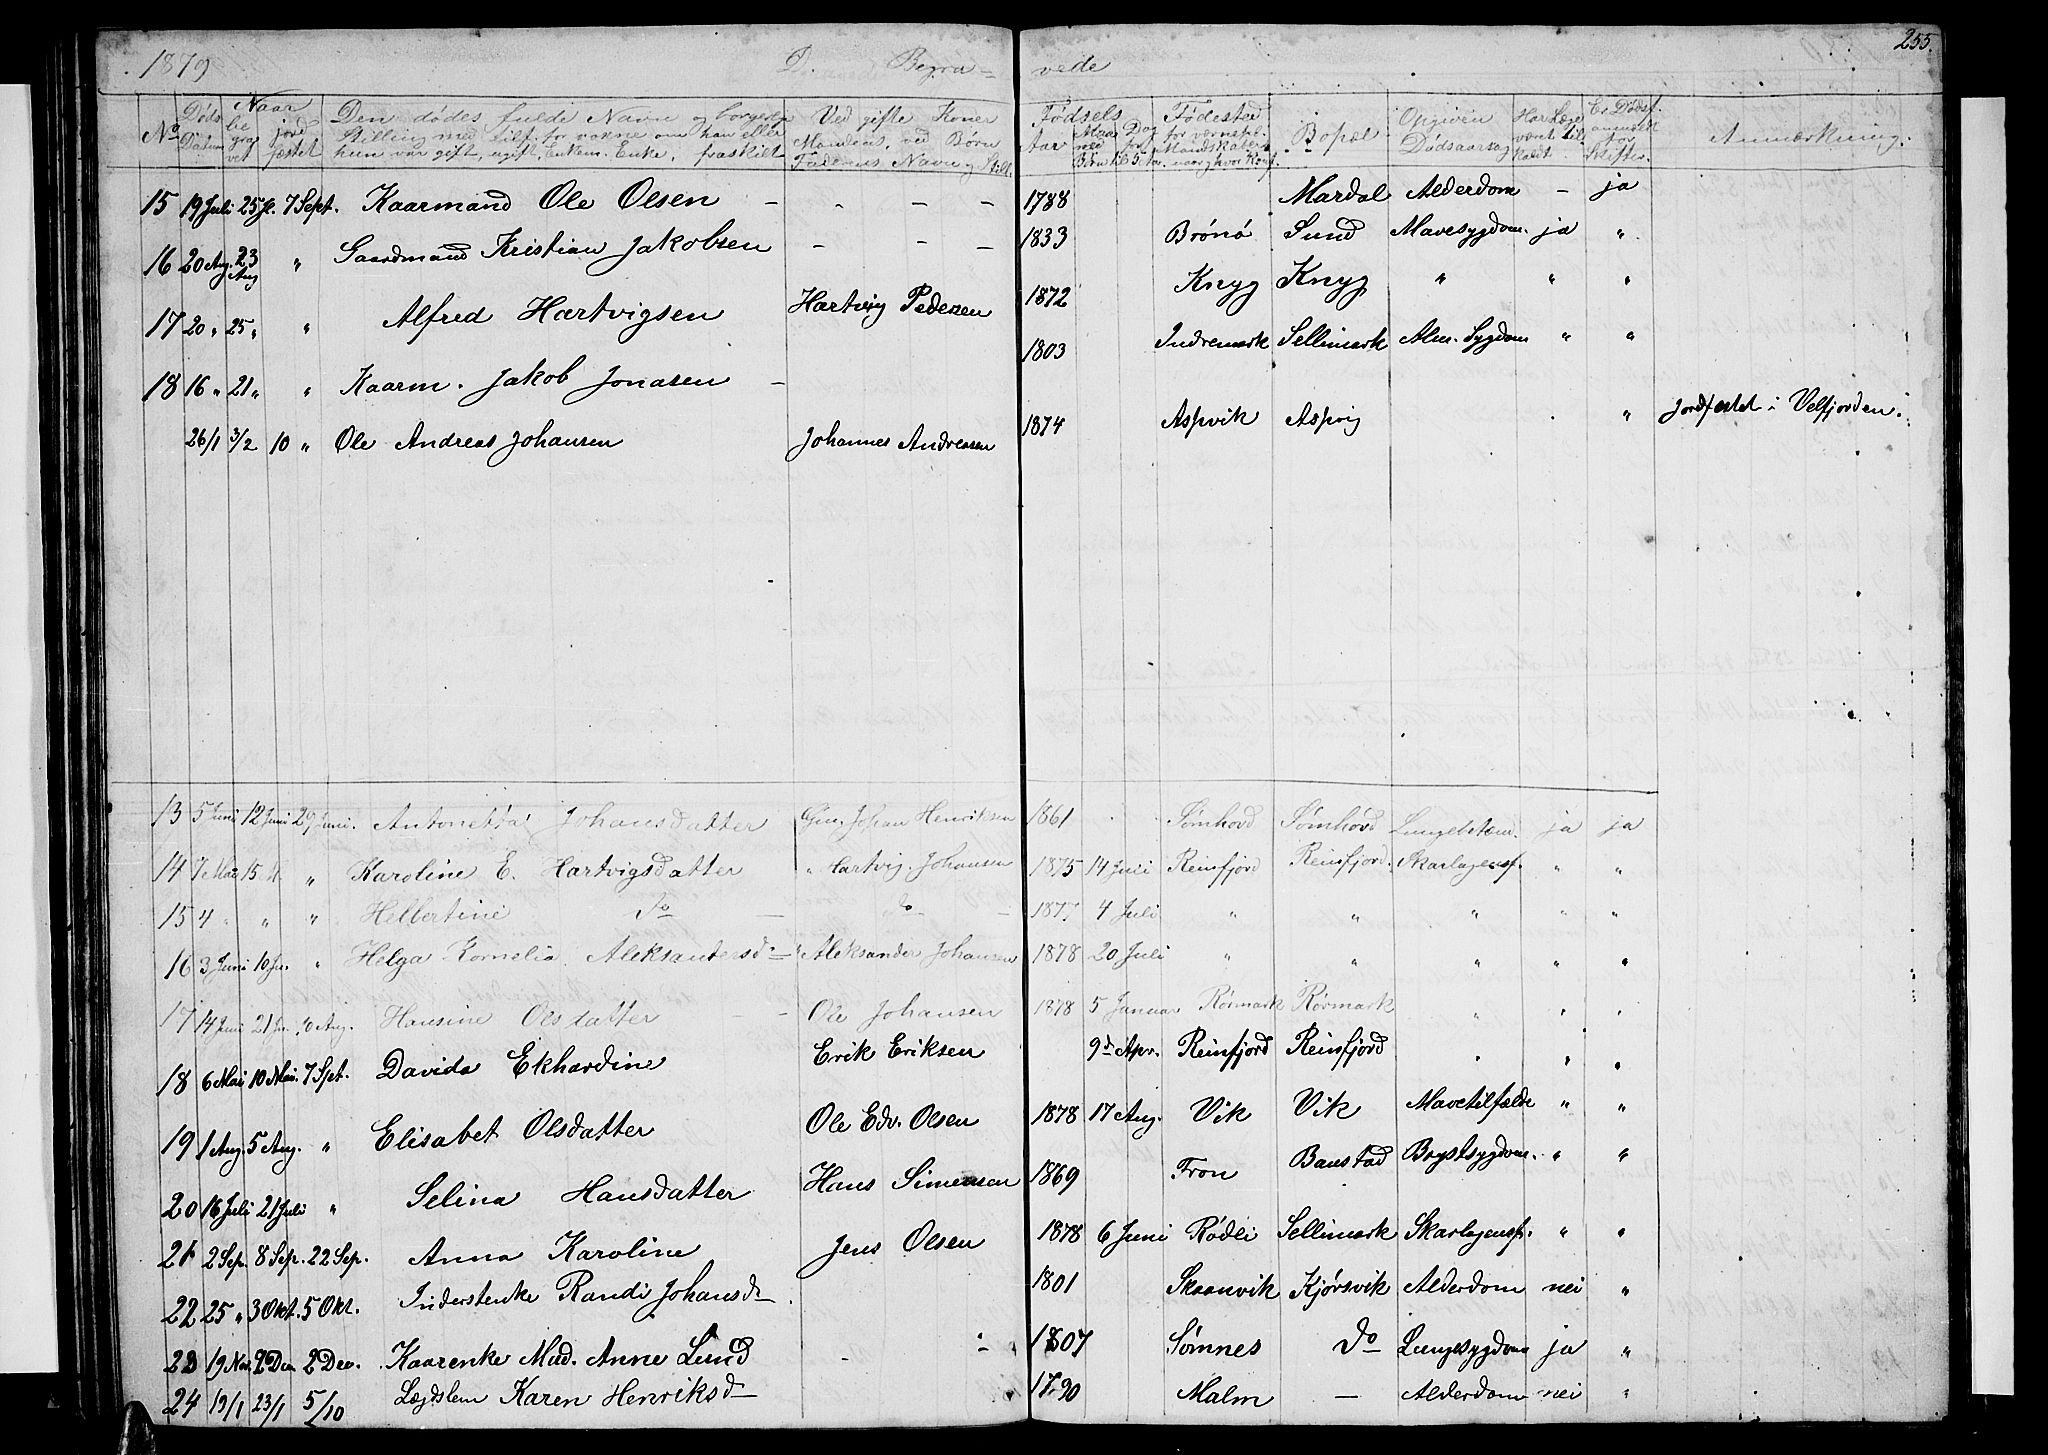 1879 D. Begra- vede 255.
No Døds Datum Naar be gra vet jord fæstet Den dødes fulde Navn og borgerlige Stilling med Tilf. for voksne om han eller hun var gift, ugift, Enkem. Enke, fraskilt Ved gifte Koner Mandens, ved Børn Faderens Navn og Still. Fødsels Aar Maa ned Dag Børn for Fødested Bopæl Opgiven Dødsaarsag Har Læge været til kaldt Er Dødsf. anmeldt for Skifter. Anmærkning.
15 19 Juli 25 Jl. 7 Sept. Kaarmand Ole Olsen - - - - 1788 Mardal Alderdom - ja
16 20 Aug. 23 Aug " Gaardmand Kristian Jakobsen - - - 1833 Brønø Sund Mavesygdom. ja "
17 20 " 25 " " Alfred Hartvigsen Hartvig Pedersen 1872 Knyg Knyg " " "
18 16 " 21 " " Kaarm. Jakob Jonasen - 1803 Indremark Sellimark Alm. Sygdom " "
26/1 3/2 10 " Ole Andreas Johansen Johannes Andreasen 1874 Aspvik Aspvig " Jordfestet i Velfjorden.
13 5 Juni 12 Juni 29 Juni. Antonetta Johansdatter Gm. Johan Henriksen 1861 Sømhovd Sømhovd Lungebetænd. ja ja
14 7 Mai 15 M. " Karoline E. Hartvigsdatter " Hartvig Johansen 1875 14 Juli Reinfjord Reinsfjord. Skarlagensf. " "
15 4 " " " Helbertine Do - Do - 1877 4 Juli " " " " "
16 3 Juni 10 Ju. " Helga Kornelia Aleksandersd- " Aleksander Johansen 1878 20 Juli " " " " "
17 14 Juni 21 Ju. 10 Aug. Hansine Olsdatter - - Ole Johansen 1878 5 Januar Rørmark Rørmark " " "
18 6 Mai 10 Mai. 7 Spt. Davida Ekhardine Erik Eriksen 9d Apr. Reinfjord Reinsfjord " " "
19 1 Aug. 5 Aug. " Elisabet Olsdatter Ole Edv. Olsen 1878 17 Aug. Vik Vik Mavetilfælde " "
20 16 Juli 21 Juli " Selina Hansdatter Hans Simensen 1869 Tron Baustad Brystsygdom. " "
21 2 Sep. 8 Sep. 22 Sep. Anna Karoline Jens Olsen 1878 6 Juni Rødli Sellimark Skarlagensf. " "
22 25 " 3 Okt. 5 Okt. Inderstenke Randi Johansd- 1801 Skaanvik Kjørsvik Alderdom nei "
23 19 Nov. 2 Den 2 Dev. Kaarenke Mad. Anne Lund - - 1807 Sømnes Do Lungesygdom ja "
24 19/1 23/1 5/10 Lægdslem Karen Henriksd- 1790 Malm - Alderdom nei "